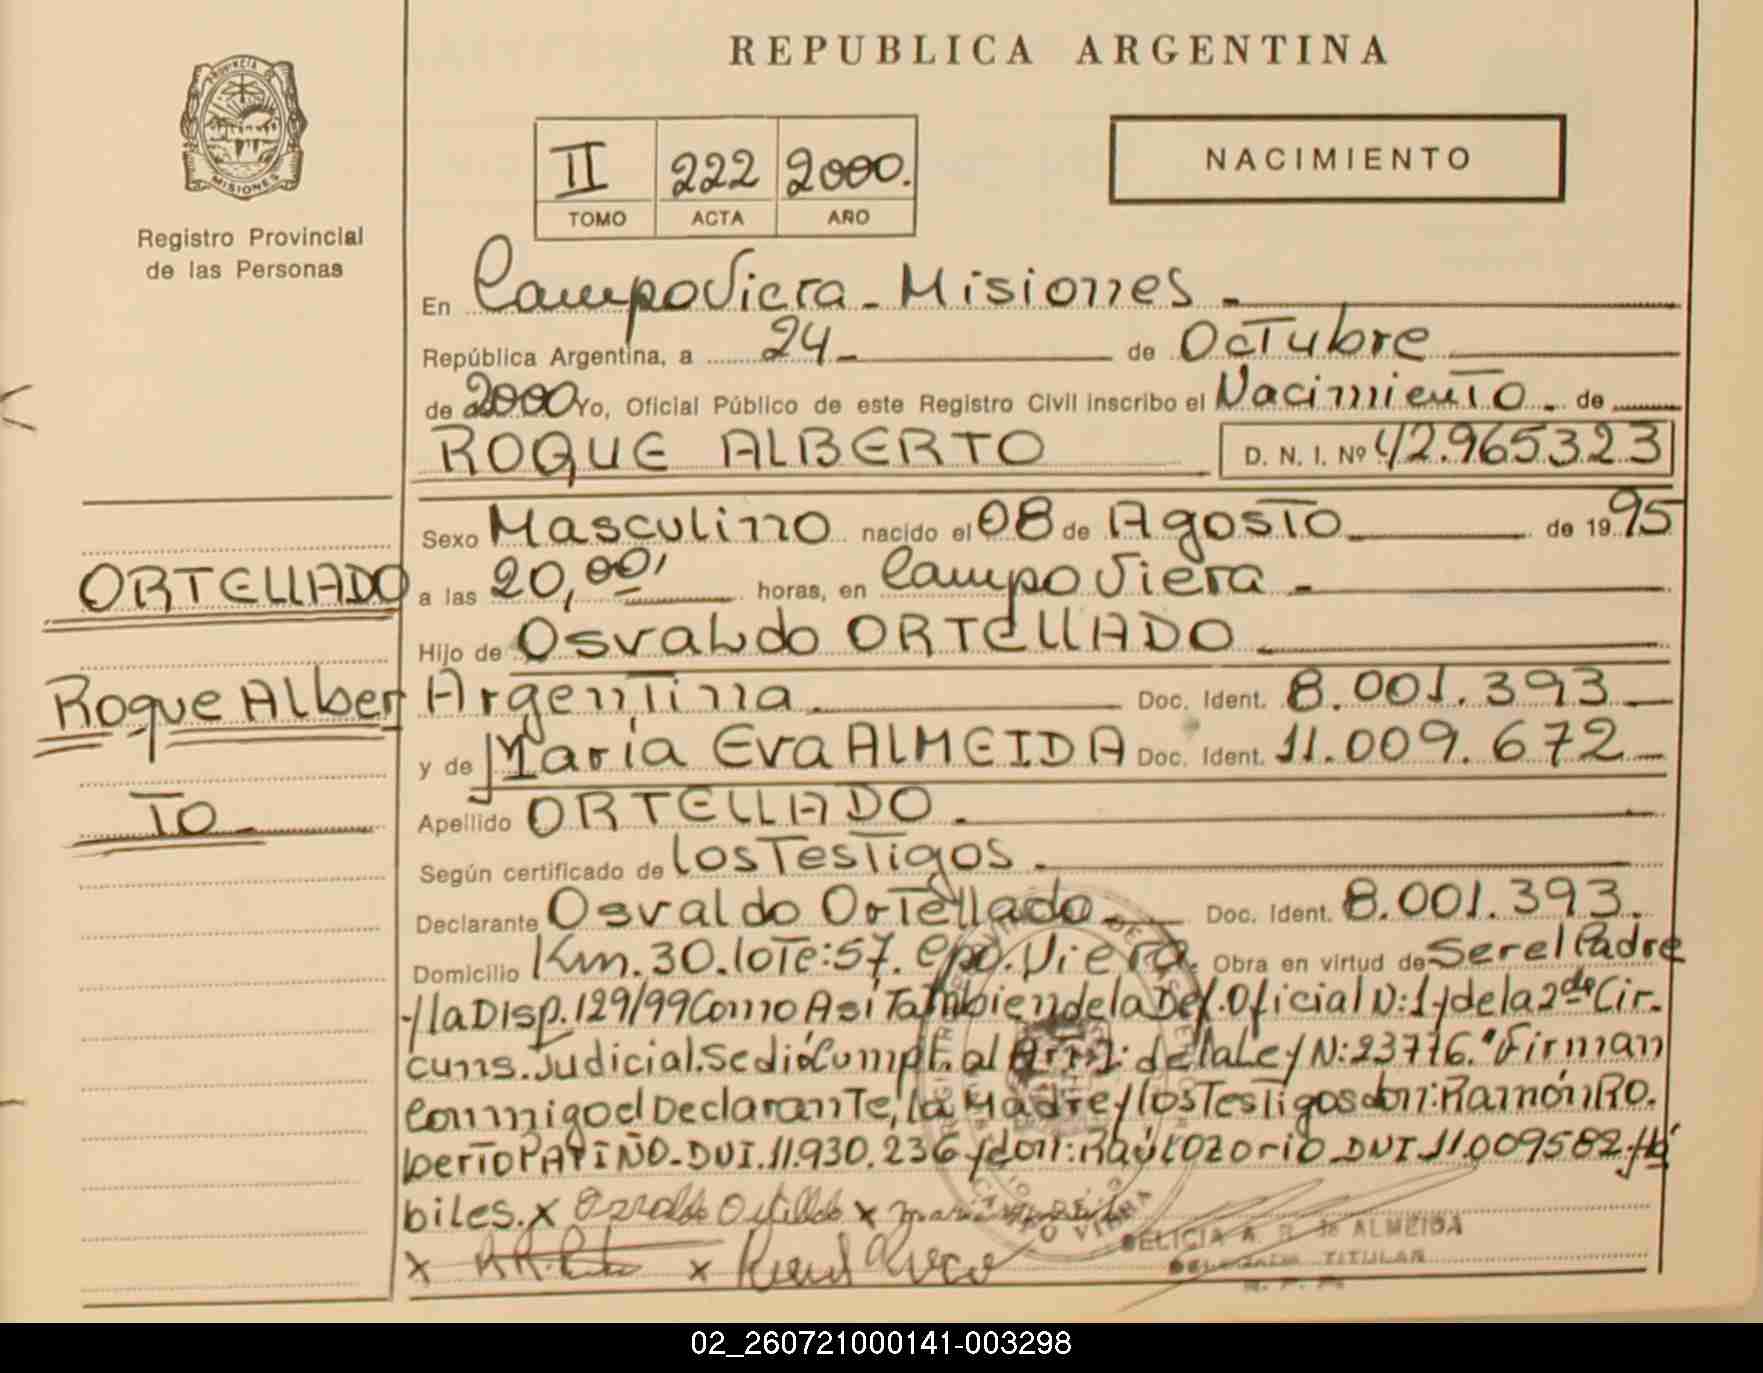 REPUBLICA ARGENTINA
PROVINCIA DE
MISIONES
Registro Provincial
de las Personas
II 222 2000.
TOMO ACTA AÑO
NACIMIENTO
En Campo Viera - Misiones -
República Argentina, a 24 - de Octubre
de 2000 Yo, Oficial Público de este Registro Civil inscribo el Nacimiento. de
ROQUE ALBERTO D. N. I. Nº 42.965323
Sexo Masculino nacido el 08 de Agosto de 19 95
a las 20,00' horas, en Campo Viera -
Hijo de Osvaldo ORTELLADO
Argentina. Doc. Ident. 8.001.393
y de María Eva ALMEIDA Doc. Ident. 11.009.672
Apellido ORTELLADO.
Según certificado de los Testigos.
Declarante Osvaldo Ortellado. Doc. Ident. 8.001.393.
Domicilio Km.30.lote:57.Cpo.Viera. Obra en virtud de Ser el Padre
y la Disp.129/99 Como Asi Tambien de la Def.Oficial N:1 y de la 2da Cir-
cuns.Judicial.Se dió Cumpl.al Art.2: de la Ley N:23776."Firman
Conmigo el Declarante, la Madre y los Testigos don:Ramón Ro.
berto PATIÑO-DNI.11.930.236 y don:Raúl Ozorio DNI.11.009582-Há
biles.x Osvaldo Ortellado x
x x
ORTELLADO
Roque Alber
To.
CAMPO VIERA
DELICIA A. R. de ALMEIDA
DELEGADA TITULAR
02_260721000141-003298